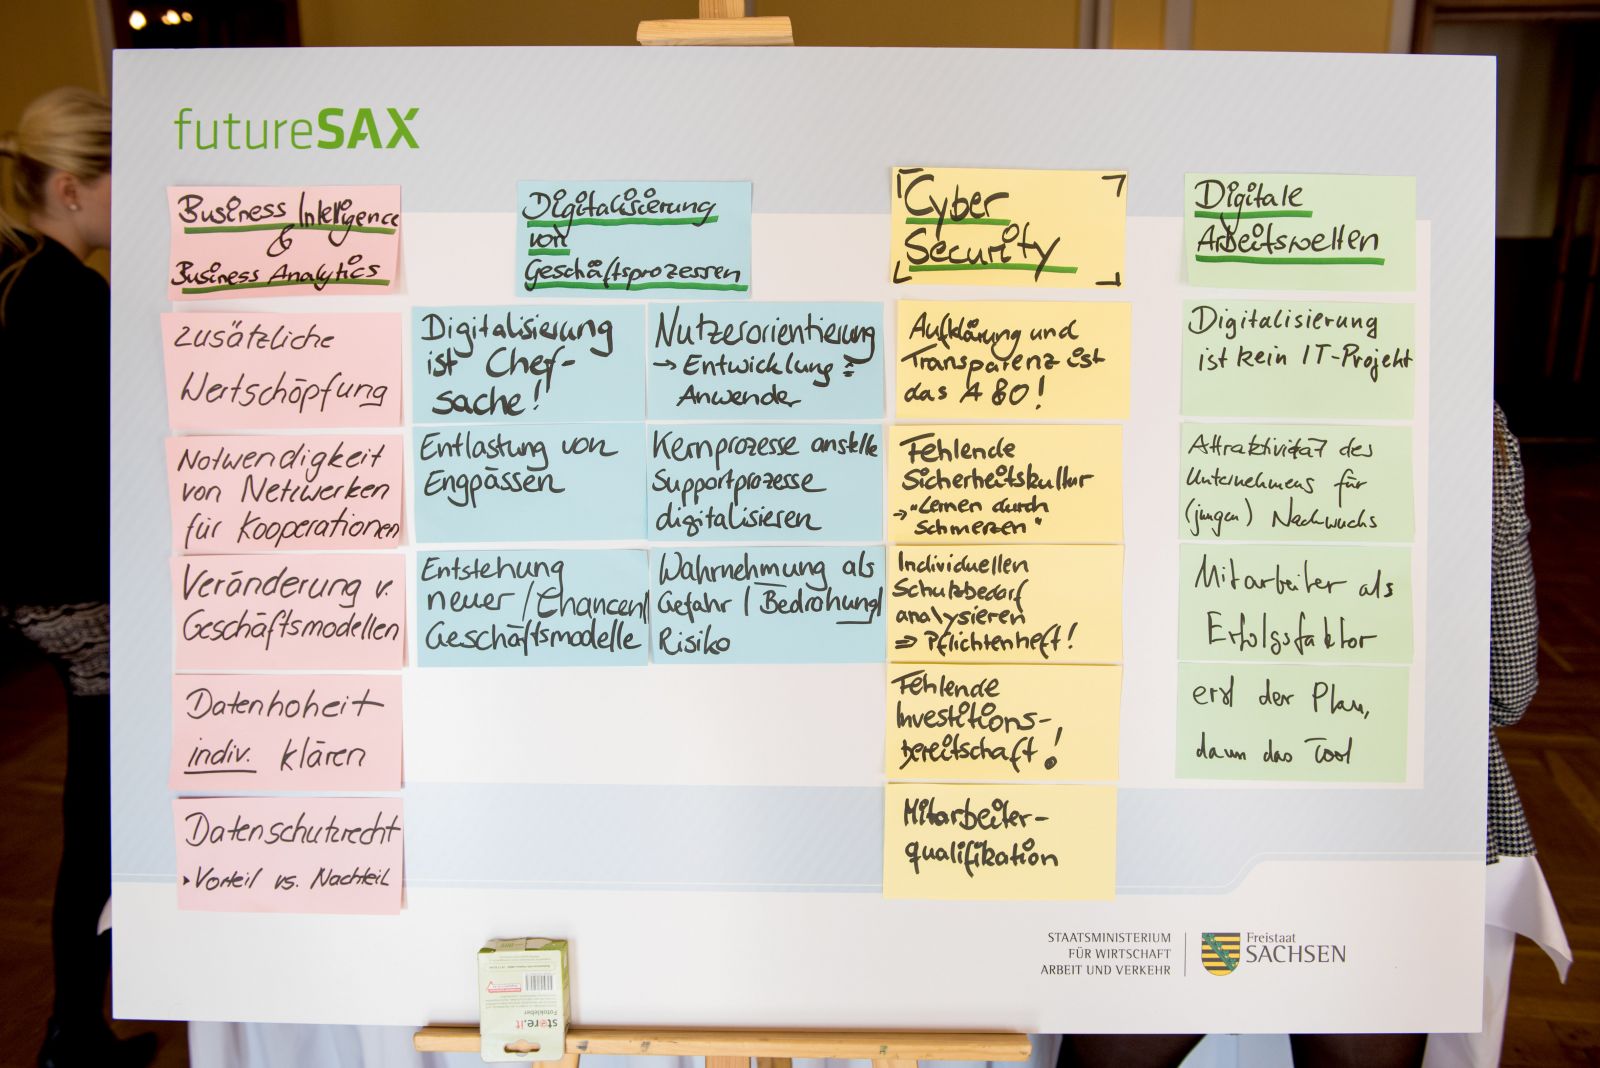 futureSAX
Business Intelligence
&
Business Analytics
zusätzliche
Wertschöpfung
Notwendigkeit
von Netzwerken
für Kooperationen
Veränderung v.
Geschäftsmodellen
Datenhoheit
indiv. klären
Datenschutzrecht
Vorteil vs. Nachteil
Digitalisierung
von
Geschäftsprozessen
Digitalisierung
ist Chef-
sache!
Entlastung von
Engpässen
Entstehung
neuer /Chancen/
Geschäftsmodelle
Nutzerorientierung
→ Entwicklung ≙
Anwender
Kernprozesse anstelle
Supportprozesse
digitalisieren
Wahrnehmung als
Gefahr / Bedrohung/
Risiko
Cyber
Security
Aufklärung und
Transparenz ist
das A & O!
Fehlende
Sicherheitskultur
→ "Lernen durch
Schmerzen"
Individuellen
Schutzbedarf
analysieren
⇒ Pflichtenheft!
Fehlende
Investitions-
bereitschaft!
Mitarbeiter-
qualifikation
Digitale
Arbeitswelten
Digitalisierung
ist kein IT-Projekt
Attraktivität des
Unternehmens für
(jungen) Nachwuchs
Mitarbeiter als
Erfolgsfaktor
erst der Plan,
dann das Tool
STAATSMINISTERIUM
FÜR WIRTSCHAFT
ARBEIT UND VERKEHR
Freistaat
SACHSEN
Fotokleber
store.it